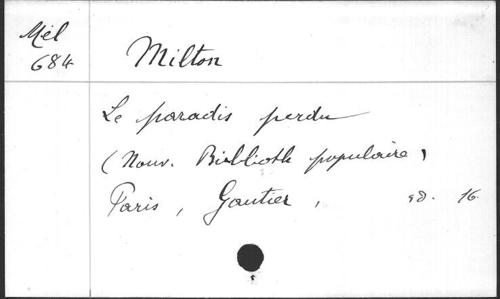 Mél
684
Milton
Le paradis perdu
(Nouv. Biblioth populaire)
Paris, Gautier, sd. 16.